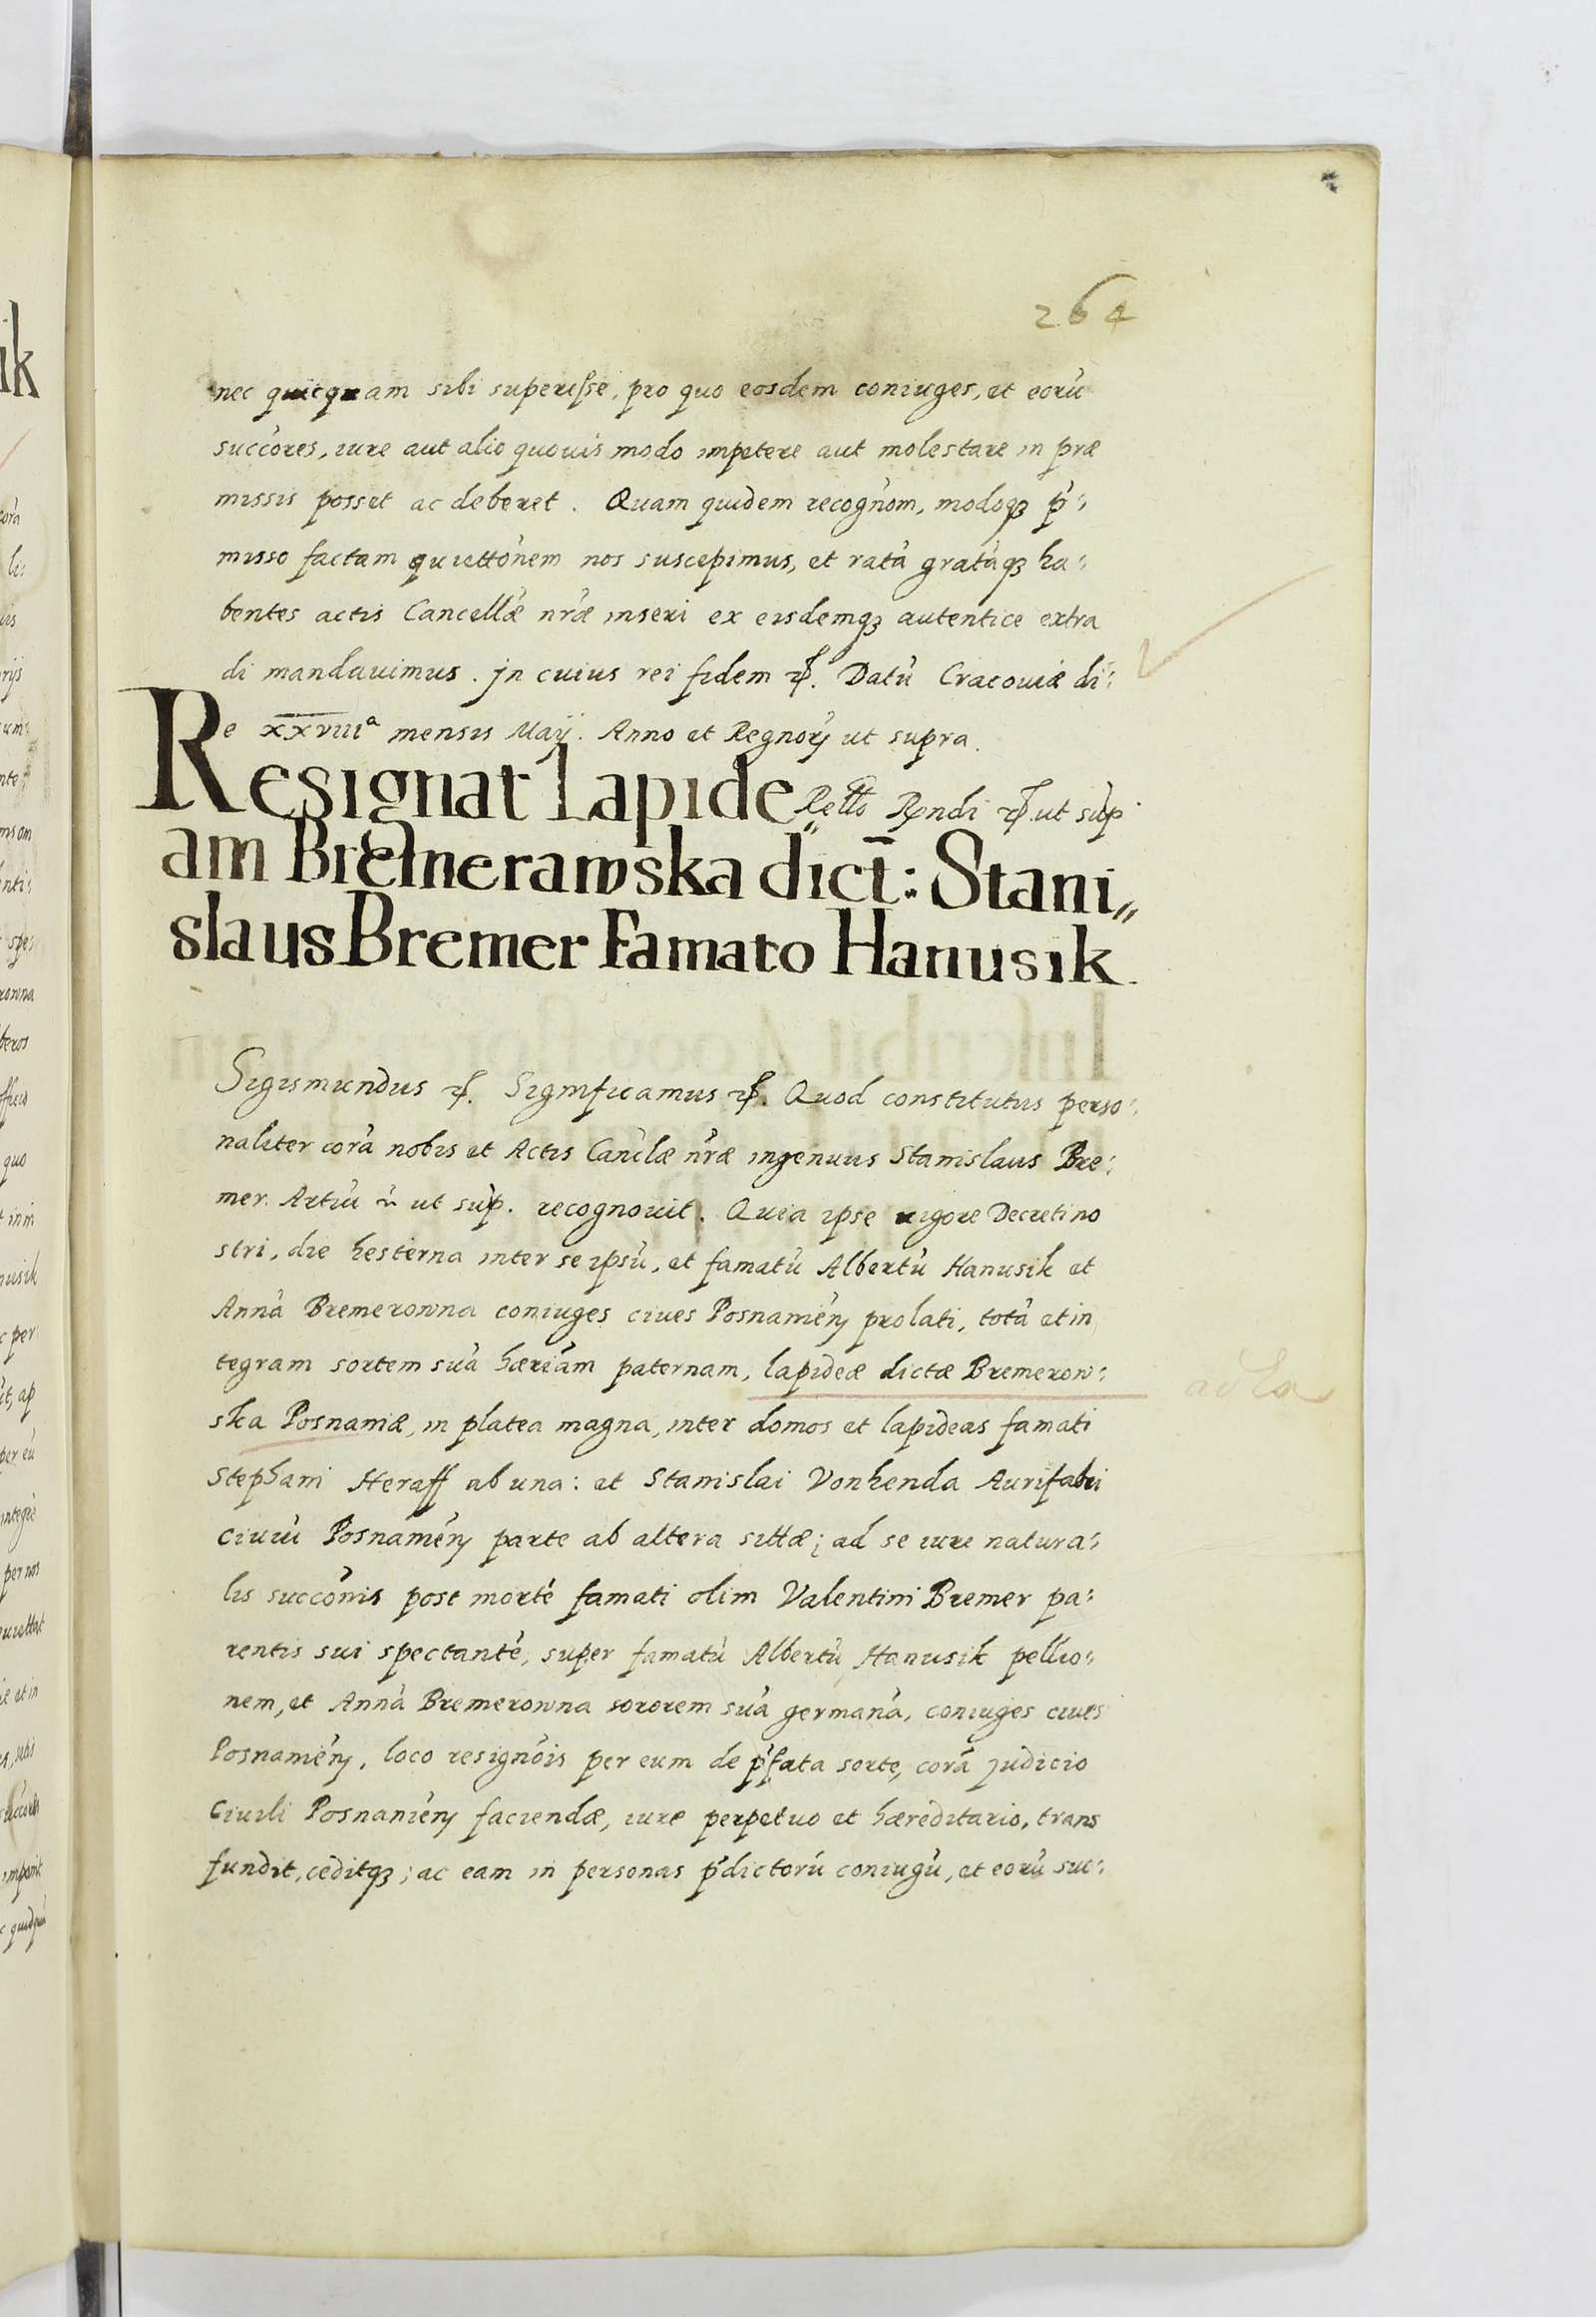 264
nec quicquam sibi superesse, pro quo eosdem coniuges, et eorũ
succores, iure aut alio quouis modo impetere aut molestare in præ
missis posset ac deberet. Quam quidem recognom, modoqꝫ p̃:
misso factam quiettonem nos suscepimus, et ratã gratãqꝫ ha:
bentes actis Cancellæ nr̃æ inseri ex eisdemqꝫ autentice extra
di mandauimus. Jn cuius rei fidem ꝛc. Datũ Cracouiæ di:
e xxviiiª mensis Maij. Anno et Regnorꝫ ut supra.
Resignat Lapide Rendi ꝛc. ut sup̃.
am Bremerawska dict̄: Stani„
slaus Bremer Famato Hanusik
Sigismundus ꝛc. Significamus ꝛc. Quod constitutus perso:
naliter corã nobis et Actis Canclæ nr̃æ ingenuus Stanislaus Bre:
mer. Artiũ ut sup̃. recognouit. Quia ipse uigore Decreti no
stri, die hesterna inter se ipsũ, et famatũ Albertũ Hanusik et
Annã Bremerowna coniuges ciues Posnamien̄ prolati, totã et in
tegram sortem suã hæriam paternam, lapideæ dictæ Bremerow:
ska Posnaniæ, in platea magna, inter domos et lapideas famati
Stephani Heraff ab una: et Stanislai Vonhenda Aurifabri
ciuiũ Posnamien̄ parte ab altera sittæ; ad se iure natura:
lis succonis post mortẽ famati olim Valentini Bremer pa:
rentis sui spectantẽ, super famatũ Albertũ Hanusik pellio:
nem, et Annã Bremerowna sororem suã germanã, coniuges ciues
Posnamien̄, loco resignois per eum de p̃fata sorte, corã judicio
Ciuili Posnamien̄ faciendæ, iure perpetuo et hæreditario, trans
fundit, ceditqꝫ; ac eam in personas p̃dictorũ coniugũ, et eorũ suc: